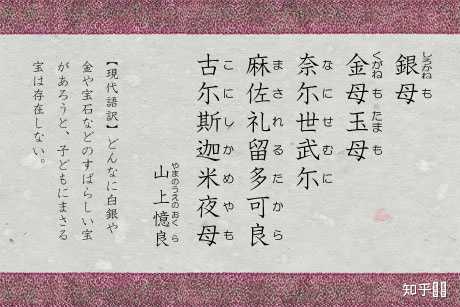 しろかねも
銀母
くがねもたまも
金母玉母
なにせむに
奈尓世武尓
まされるたから
麻佐礼留多可良
こにしかめやも
古尓斯迦米夜母
やまのうえのおくら
山上憶良
【現代語訳】どんなに白銀や
金や宝石などのすばらしい宝
があろうと、子どもにまさる
宝は存在しない。
知乎